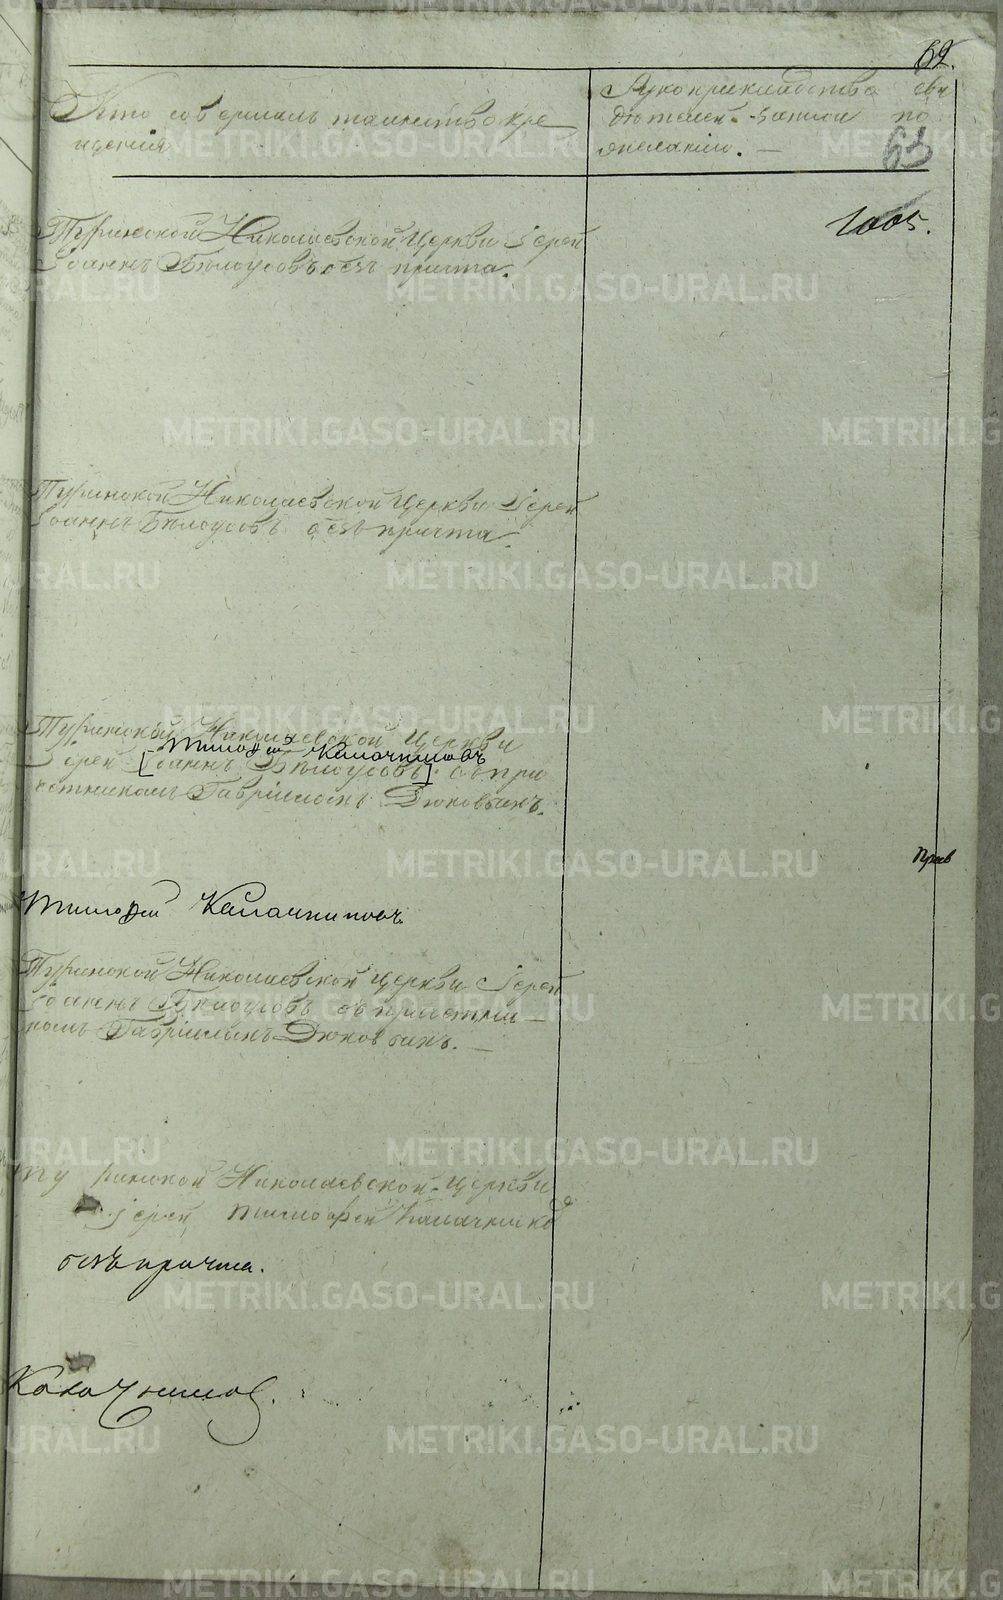 62.
63
Кто совершалъ таинство кре
щенія
Рукоприкладство сви
дѣтелей записи по
желанію. —
1005.
Туринской Николаевской Церкви Іерей
Іоаннъ Бѣлоусовъ безъ причта.
Туринской Николаевской Церкви Іерей
Іоаннъ Бѣлоусовъ безъ причта.
Туринской Николаевской Церкви
Тимофей Калачниковъ
Іерей [Іоаннъ Бѣлоусовъ] съ при
четникомъ Гавріиломъ Дюковымъ.
Тимофей Калачниковъ
Туринской Николаевской Церкви Іерей
Іоаннъ Бѣлоусовъ съ причетни—
комъ Гавріиломъ Дюковымъ. —
Туринской Николаевской Церкви
Іерей Тимофей Калачников
безъ причта.
Калачников.
METRIKI.GASO-URAL.RU